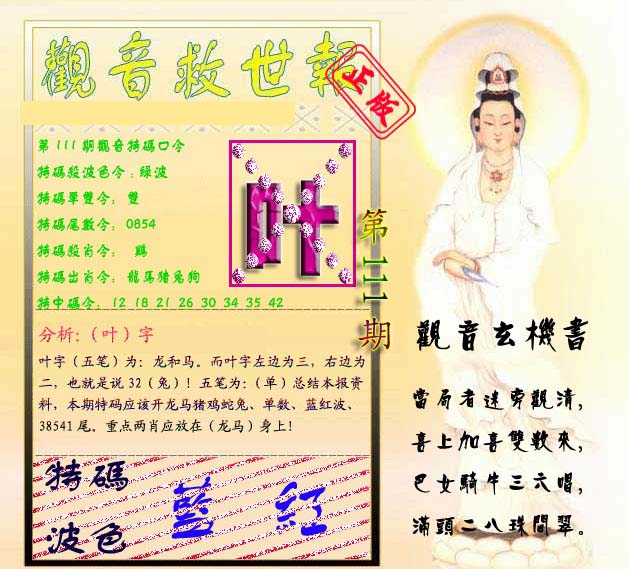 觀音救世報
正版
第111期觀音特碼口令
特碼殺波色令:綠波
特碼單雙令: 雙
特碼尾數令: 0854
特碼殺肖令: 鷄
特碼出肖令: 龍馬猪兔狗
特中碼令: 12 18 21 26 30 34 35 42
叶
第111期
分析:（叶）字
叶字（五笔）为：龙和马。而叶字左边为三，右边为
二，也就是说 32（兔）！五笔为:（单）总结本报资
料，本期特码应该开龙马猪鸡蛇兔、单数、蓝红波、
38541 尾。重点两肖应放在（龙马）身上！
特碼
波色
藍 紅
觀音玄機書
當局者迷旁觀清，
喜上加喜雙數來，
巴女騎牛三六唱，
滿頭二八珠間翠。